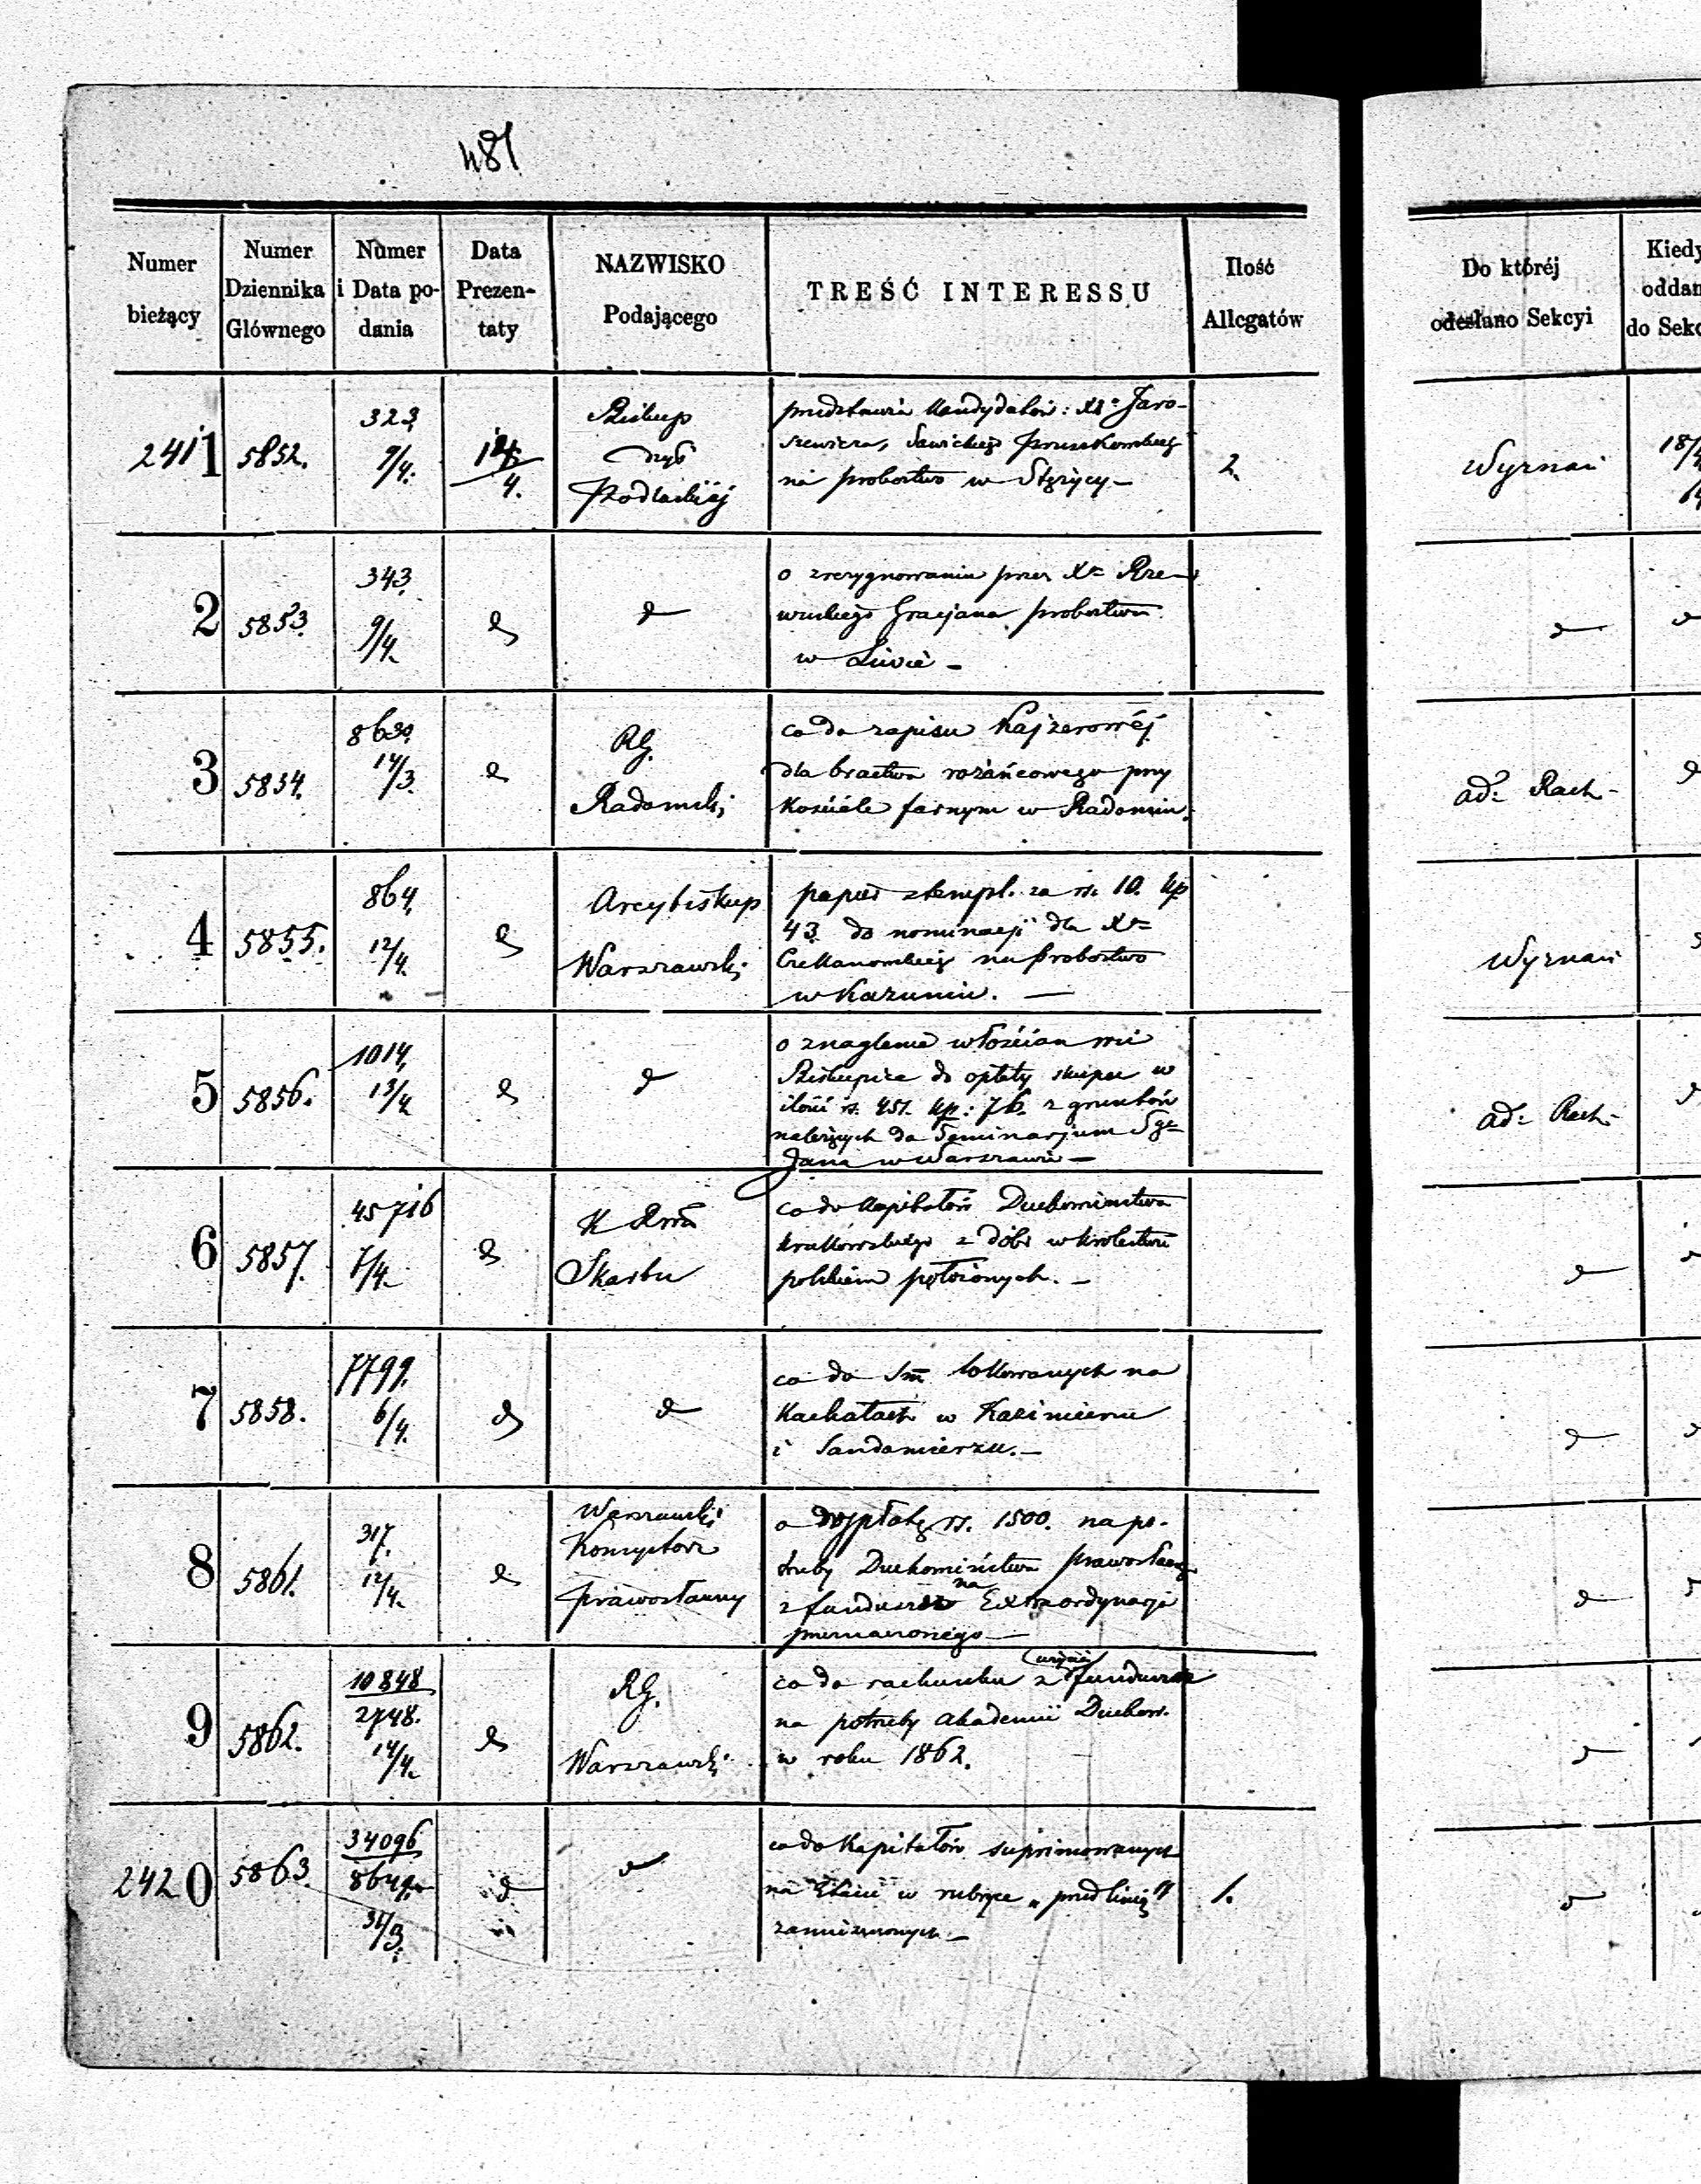 481
Numer bieżący
Numer Dziennika Głównego
Numer i Data podania
Data Prezentaty
NAZWISKO Podającego
TREŚĆ INTERESSU
Ilość Allegatów
Do któréj odesłano Sekcyi
Kiedy oddan do Sekc
2411 5852. 323 9/4. 4. Biskup dyś Podlaskiéj
przedstawia Kandydatów: XX Jaro-
szewicza, Sawickiego Pruszkowskieg
na probostwo w Stężycy – 2. Wyznań 18/4
2 5853. 343 9/4. d d
o zrezygnowaniu przez Xa Rze-
wuskiego Gracjana probostwa
w Liwie – d
3 5854. 8630. 14/3. d RG. Radomski
co do zapisu Kajzerowéj
dla bractwa rożańcowego przy
Kościele farnym w Radomiu. ad: Rach-
4 5855. 864. 12/4. d Arcybiskup Warszawski
papier stempl. za rs. 10. kp
43. do nominacji dla Xa
Czekanowskieg na probostwo
w Kazuniu. — Wyznań
5 5856. 1014. 13/4. d d
o znaglenie włościan wsi
Biskupice do opłaty skupu w
ilości rs. 451. kp: 76. z gruntów
należących do Seminarjum Sgo
Jana w Warszawie – ad: Rach-
6 5857. 45716 7/4. d K Rwa Skarbu
co do Kapitałów Duchowieństwa
krakowskiego z dóbr w Królestwie
polskiem położonych. – d
7 5858. 7799. 6/4. d d
co do Sm lokowanych na
Kahałach w Kazimierzu
i Sandomierzu. – d
8 5861. 317. 12/4. d Warszawski Konsystorz prawosławny
o wypłatę rs. 1500. na po-
trzeby Duchowieństwa prawosławneg
z funduszu na Extraordynarja
przeznaczonego — d
9 5862. 10848 2748. 14/4. d RG. Warszawski
co do rachunku z funduszu
na potrzeby Akademii Duchow.
w roku 1862. d
2420 5863. 34096 31/3. d d
co do Kapitałów suprimowanych
na Etacie w rubryce „przed linią"
zamieszczonych – 1. d